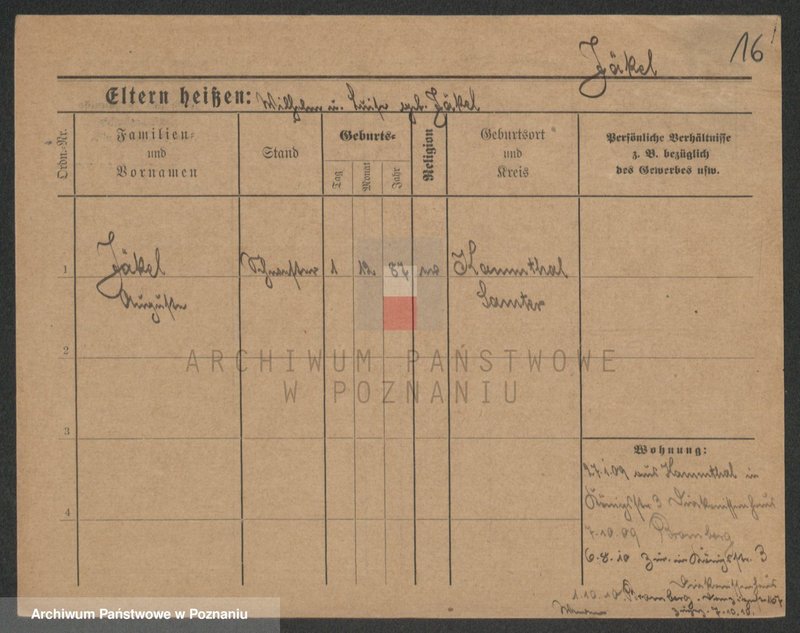 16
Jäkel
Eltern heißen: Wilhelm u. Luise geb. Jäkel
Ordn.-Nr.
Familien- und Vornamen
Stand
Geburts-
Tag
Monat
Jahr
Religion
Geburtsort und Kreis
Persönliche Verhältnisse
z. B. bezüglich
des Gewerbes usw.
1 Jäkel Schwester 1 12 87 ev Hammthal
Auguste Samter
2
ARCHIWUM PAŃSTWOWE
W POZNANIU
3
Wohnung:
27.1.09 aus Hammthal in
Königstr 3 Diakonissenhaus
4
7.10.09 Bromberg
6.8.10 zur. in Königstr. 3
Diakonissenhaus
1.10.10 Bromberg
7.10.10.
Archiwum Państwowe w Poznaniu